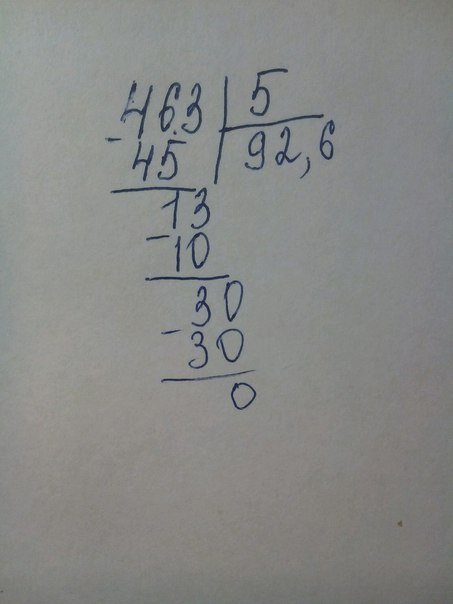 463 5
- 45 92,6
13
- 10
30
- 30
0